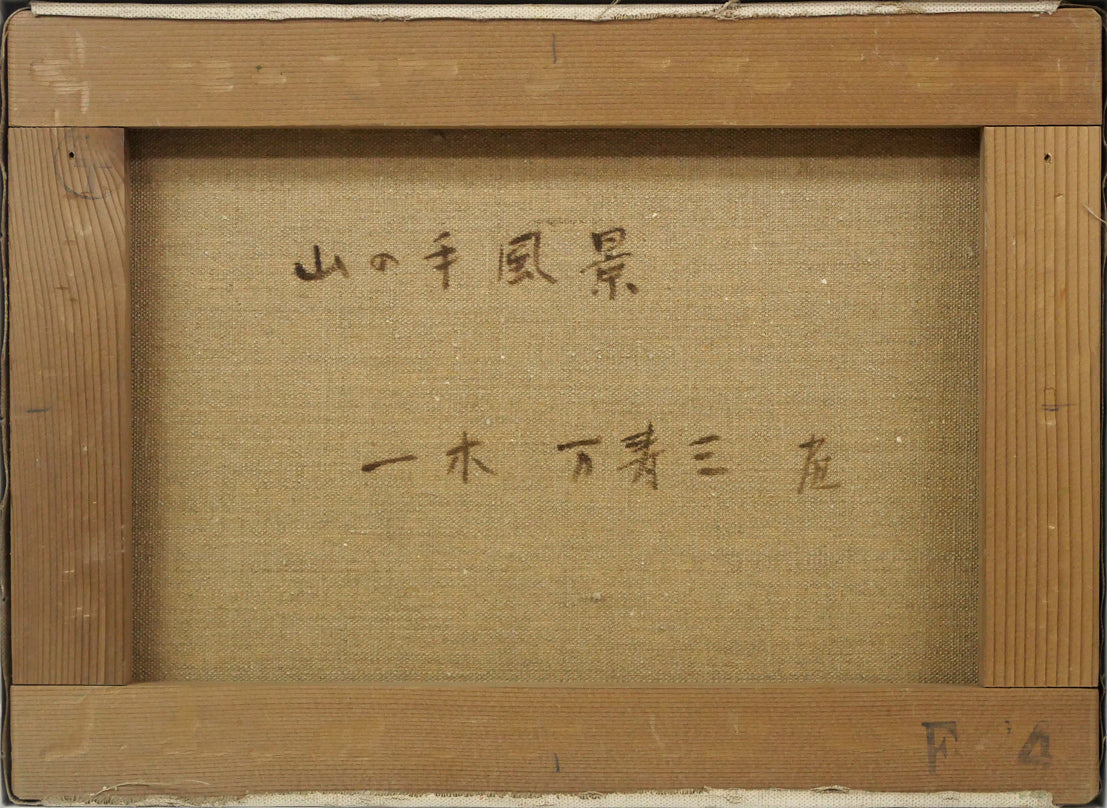 山の手風景
一木 万寿三
F 4